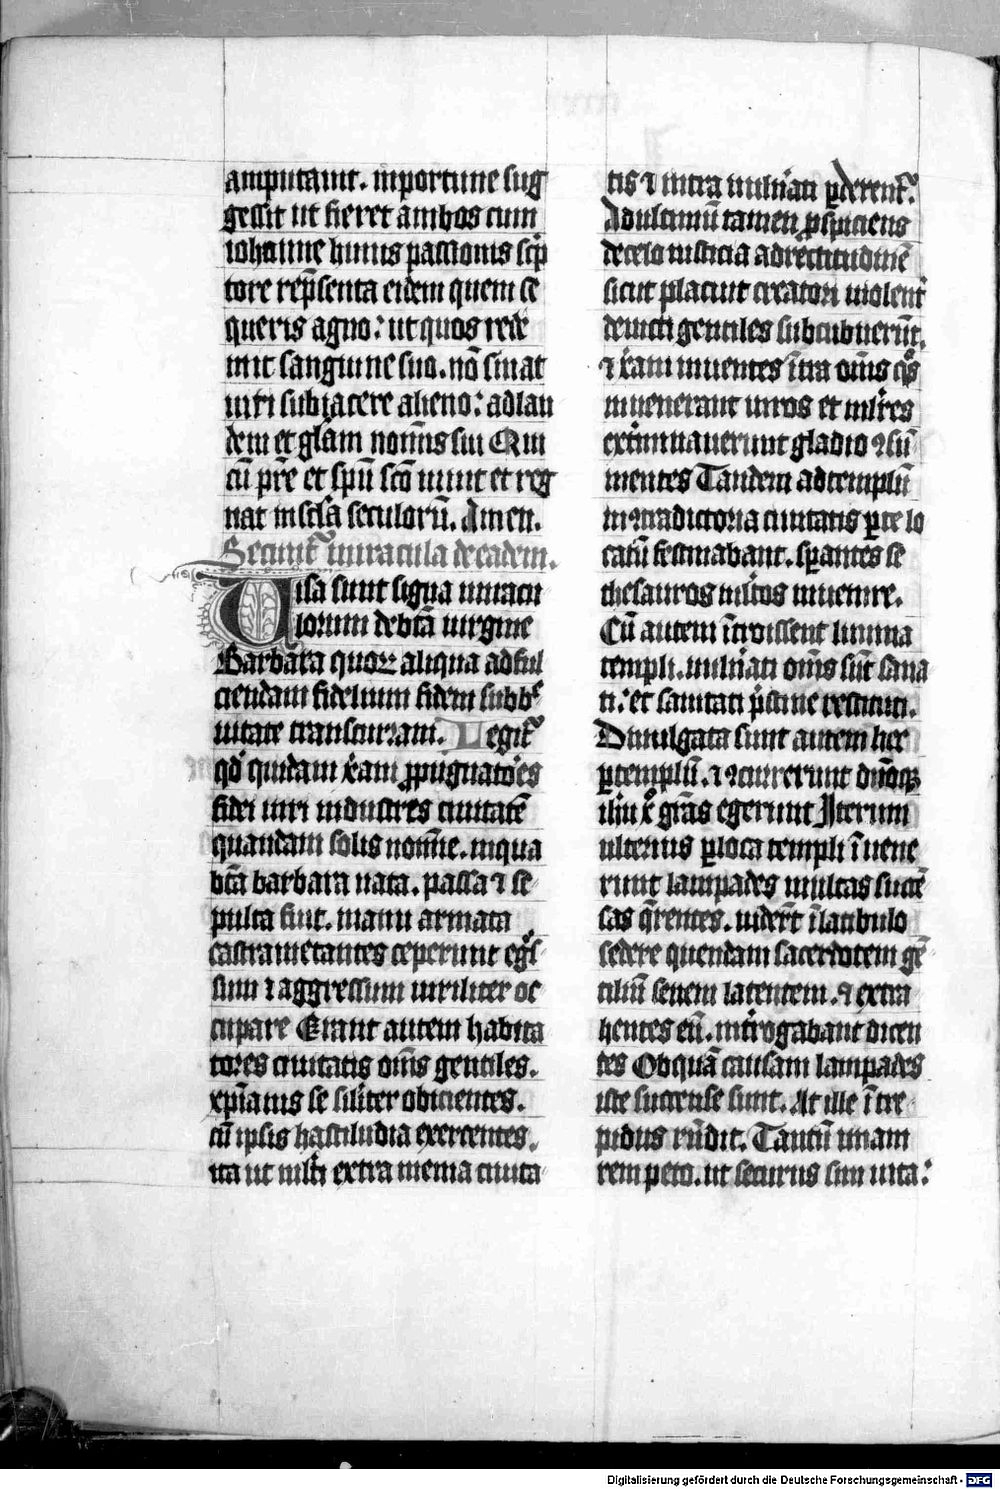 amputauit. inportune sug
gessit ut fieret ambos cum
iohanne huius passionis sc͛p
tore rep̄senta eidem quem se
queris agno: ut quos rede
mit sanguine suo. nō sinat
iuri subiacere alieno: ad lau
dem et glam nom̄is sui Qui
cū pr̄e et spū scō uiuit et reg
nat in sc̄la seculorū. Amen.
Secunt᷑ miracula de eadem.
Uisa sunt signa miracu
lorum de btā uirgine
Barbara quoꝝ aliqua ad ful
ciendam fidelium fidem sub b᷑
uitate transcurram. Legit᷑
qd̄ quidam x̄iam ꝓpugnato͛es
fidei uiri industres ciuitatē
quandam solis nom̄ie. in qua
btā barbara nata. passa ⁊ se
pulta fuit. manu armata
castrametantes ceperunt eg͛s
sum ⁊ aggressum uiriliter oc
cupare Erant autem habita
tores ciuitatis om̄s gentiles.
xp̄ianis se silīter obicientes.
cū ipsis hastiludia exercentes.
ita ut mlti extra menia ciuita
tis ⁊ intra uuln̄ati ꝑderent᷑.
Ad ultimū tamen ꝓspiciens
de celo iusticia ad rectitudinē
sicut placuit creatori uiolent͛
deuicti gentiles subcubuerūt.
⁊ x̄iani inuentes īt͛ra om̄s q͛s
inuenerant uiros et mlīres
extinuauerunt gladio ꝯsū
mentes Tandem ad templū
in ꝯtradictoria ciuitatis ꝑte lo
catū festinabant. sꝑantes se
thesauros mltos inuenire.
Cū autem ītroissent limina
templi. uuln̄ati om̄s sūt sana
ti: et sanitati p͛stine restituti.
Diuulgata sunt autem hec
ꝑ templū. ⁊ ꝯcurrerunt
et gr̄as egerunt Iterum
ulterius ꝑ loca templi īuene
runt lampades multas succē
sas q̄rentes. uider̄t ī latibulo
sedere quendam sacerdotem gē
tilium senem latentem. ⁊ extra
hentes eū. intͥrogabant dicen
tes Ob quā causam lampades
iste succense sunt. At ille ītre
pidus rn̄dit. Tantū unam
rem peto. ut securus sim uita:
Digitalisierung gefördert durch die Deutsche Forschungsgemeinschaft - DFG